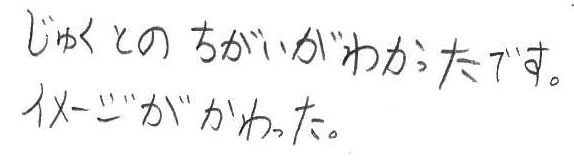 じゅくとのちがいがわかったです。
イメージがかわった。